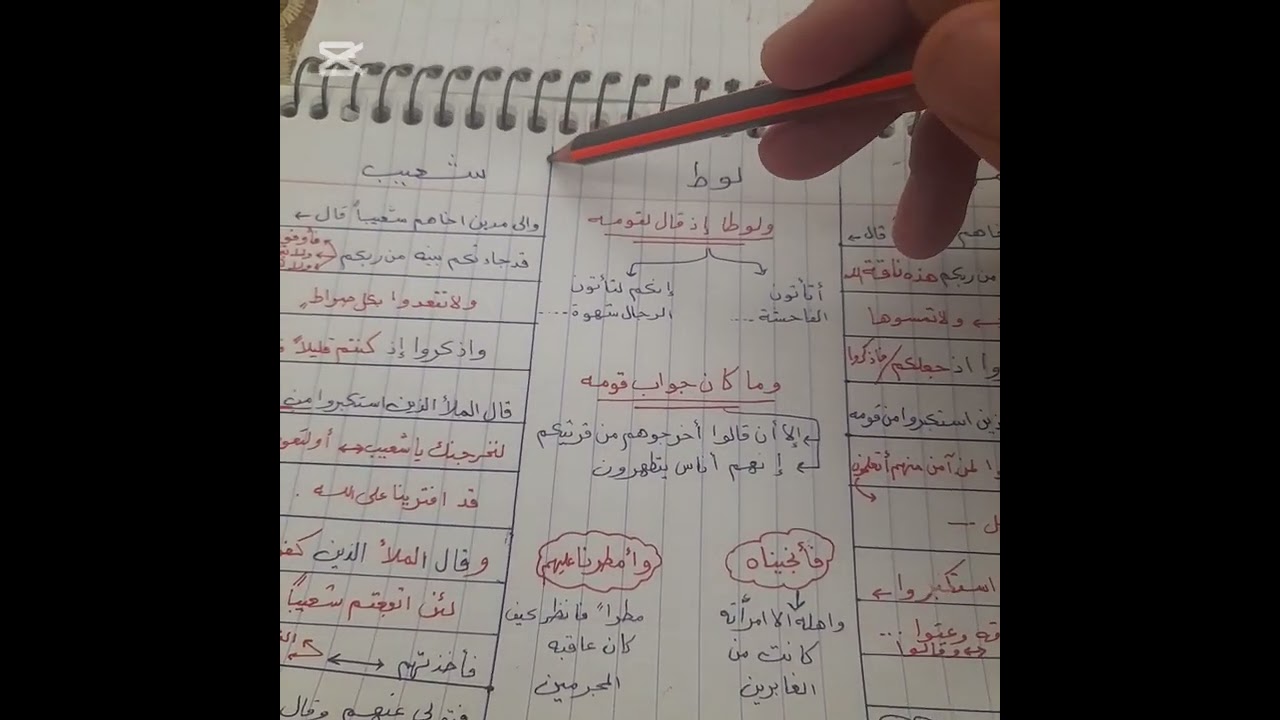 لوط
شعيب
اخاهم
قال ←
من ربكم هذه ناقة الله
ولا تمسوها
اذ جعلكم / فاذكروا
استكبروا من قومه
لمن آمن منهم أتعلمون
استكبروا ←
وعتوا ...
وقالوا
ولوطا إذ قال لقومه
أتأتون
الفاحشة ....
إنكم لتأتون
الرجال شهوة ....
وما كان جواب قومه
إلا أن قالوا أخرجوهم من قريتكم
إنهم أناس يتطهرون
فأنجيناه
واهله الا امرأته
كانت من
الغابرين
وأمطرنا عليهم
مطراً فانظر كيف
كان عاقبه
المجرمين
والى مدين اخاهم شعيباً قال ←
قد جاءتكم بينه من ربكم
فأوفوا
ولا تتعدوا بكل صراط
واذكروا إذ كنتم قليلاً
قال الملأ الذين استكبروا من
لنخرجنك يا شعيب ↔ أو لتعو
قد افترينا على الله .
وقال الملأ الذين كفر
لئن اتبعتم شعيباً
فأخذتهم ↔
عنهم وقال